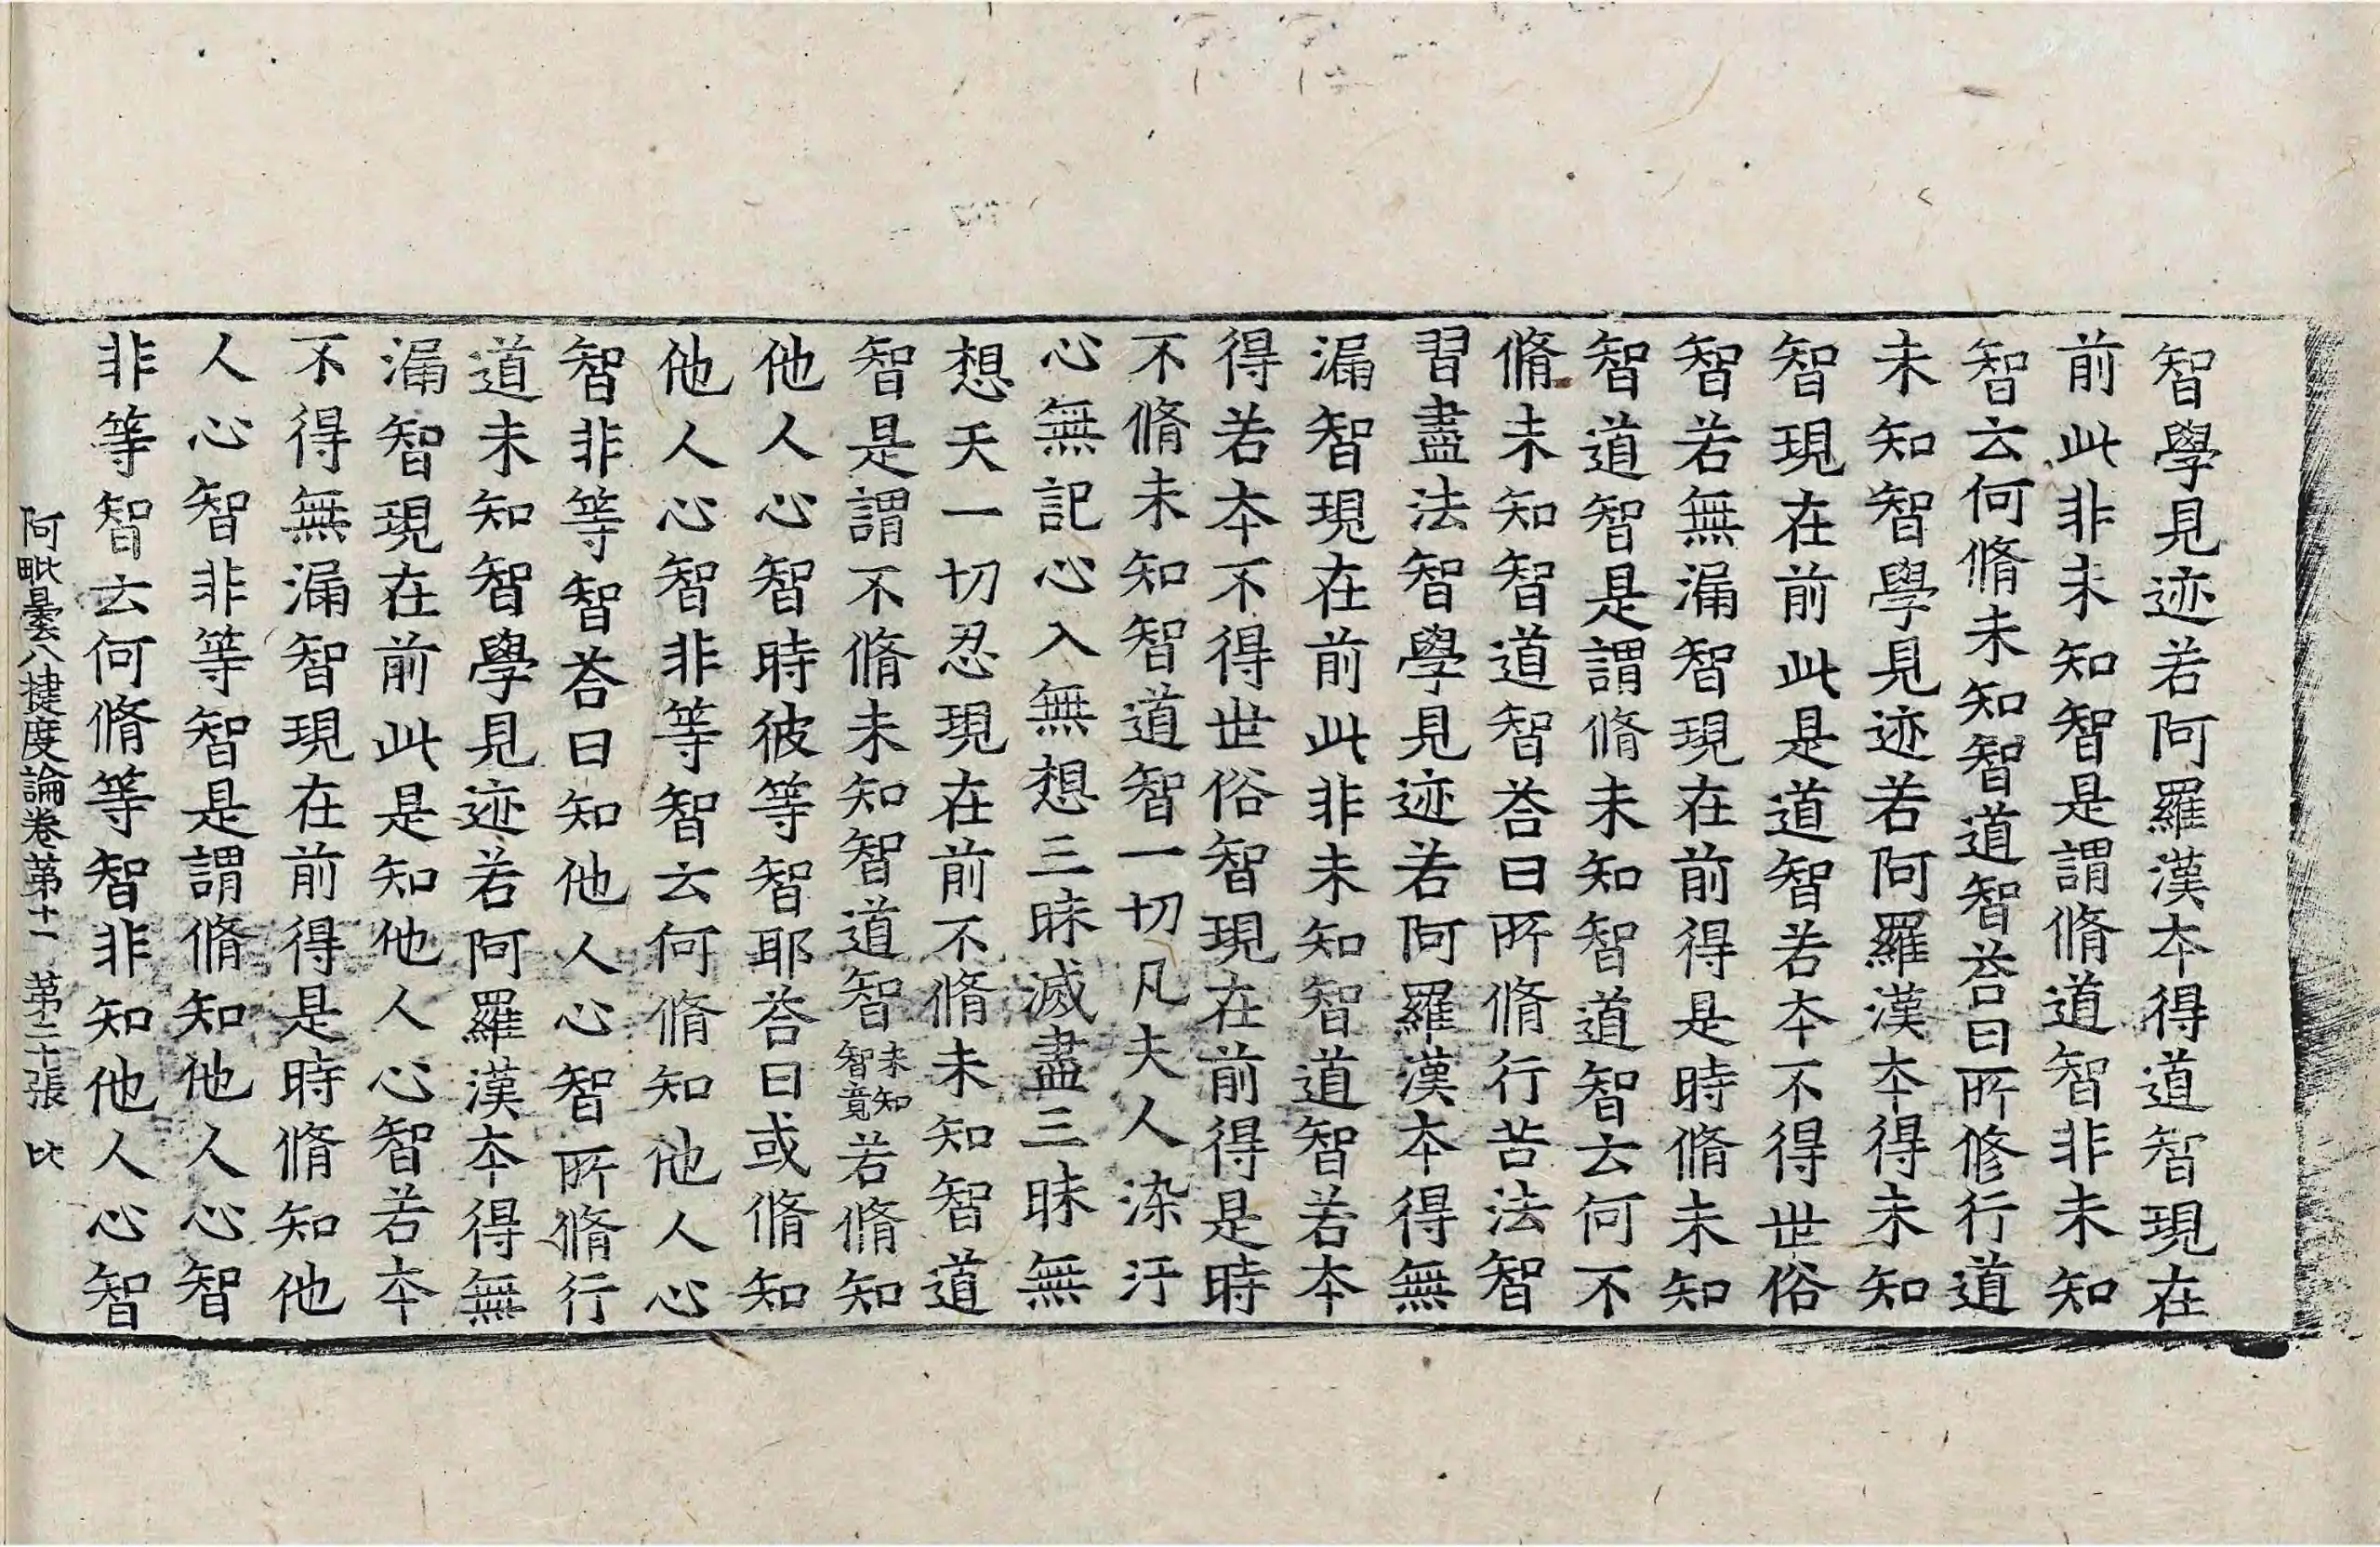 智學見迹若阿羅漢本得道智現在
前此非未知智是謂脩道智非未知
智云何脩未知智道智荅曰所修行道
未知智學見迹若阿羅漢本得未知
智現在前此是道智若本不得世俗
智若無漏智現在前得是時脩未知
智道智是謂脩未知智道智云何不
脩未知智道智荅曰所脩行苦法智
習盡法智學見迹若阿羅漢本得無
漏智現在前此非未知智道智若本
得若本不得世俗智現在前得是時
不脩未知智道智一切凡夫人染汙
心無記心入無想三昧滅盡三昧無
想天一切忍現在前不脩未知智道
智是謂不脩未知智道智未知智竟若脩知
他人心智時彼等智耶荅曰或脩知
他人心智非等智云何脩知他人心
智非等智荅曰知他人心智所脩行
道未知智學見迹若阿羅漢本得無
漏智現在前此是知他人心智若本
不得無漏智現在前得是時脩知他
人心智非等智是謂脩知他人心智
非等智云何脩等智非知他人心智
阿毗曇八揵度論卷第十一 第二十張 比